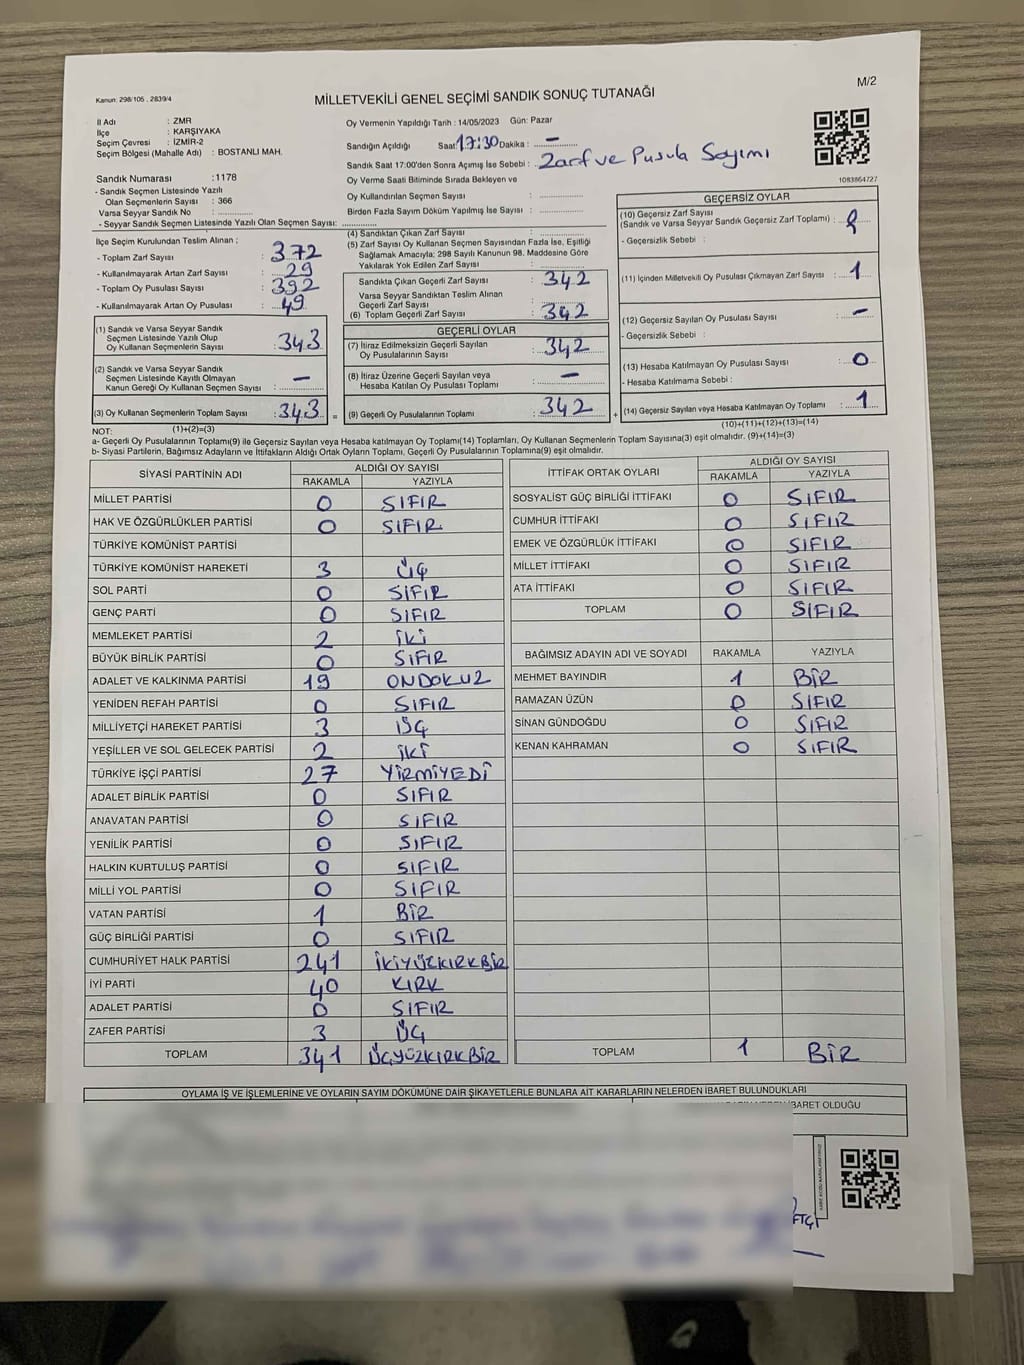 Kanun: 298/105 . 2839/4
MİLLETVEKİLİ GENEL SEÇİMİ SANDIK SONUÇ TUTANAĞI
M/2
İl Adı : ZMR
İlçe : KARŞIYAKA
Seçim Çevresi : İZMİR-2
Seçim Bölgesi (Mahalle Adı) : BOSTANLI MAH.
Oy Vermenin Yapıldığı Tarih : 14/05/2023 Gün: Pazar
Sandığın Açıldığı Saat 17:30 Dakika : —
Sandık Saat 17:00'den Sonra Açımış İse Sebebi : Zarf ve Pusula Sayımı
Oy Verme Saati Bitiminde Sırada Bekleyen ve
Oy Kullandırılan Seçmen Sayısı :
Birden Fazla Sayım Döküm Yapılmış İse Sayısı :
1083864727
Sandık Numarası : 1178
- Sandık Seçmen Listesinde Yazılı
Olan Seçmenlerin Sayısı : 366
Varsa Seyyar Sandık No :
- Seyyar Sandık Seçmen Listesinde Yazılı Olan Seçmen Sayısı:
İlçe Seçim Kurulundan Teslim Alınan ;
- Toplam Zarf Sayısı : 372
- Kullanılmayarak Artan Zarf Sayısı : 29
- Toplam Oy Pusulası Sayısı : 392
- Kullanılmayarak Artan Oy Pusulası : 49
(1) Sandık ve Varsa Seyyar Sandık
Seçmen Listesinde Yazılı Olup
Oy Kullanan Seçmenlerin Sayısı : 343
(2) Sandık ve Varsa Seyyar Sandık
Seçmen Listesinde Kayıtlı Olmayan
Kanun Gereği Oy Kullanan Seçmen Sayısı : —
(3) Oy Kullanan Seçmenlerin Toplam Sayısı : 343 =
(1)+(2)=(3)
(4) Sandıktan Çıkan Zarf Sayısı :
(5) Zarf Sayısı Oy Kullanan Seçmen Sayısından Fazla İse, Eşitliği
Sağlamak Amacıyla; 298 Sayılı Kanunun 98. Maddesine Göre
Yakılarak Yok Edilen Zarf Sayısı :
Sandıkta Çıkan Geçerli Zarf Sayısı : 342
Varsa Seyyar Sandıktan Teslim Alınan
Geçerli Zarf Sayısı :
(6) Toplam Geçerli Zarf Sayısı : 342
GEÇERLİ OYLAR
(7) İtiraz Edilmeksizin Geçerli Sayılan
Oy Pusulalarının Sayısı : 342
(8) İtiraz Üzerine Geçerli Sayılan veya
Hesaba Katılan Oy Pusulası Toplamı : —
(9) Geçerli Oy Pusulalarının Toplamı : 342 +
GEÇERSİZ OYLAR
(10) Geçersiz Zarf Sayısı
(Sandık ve Varsa Seyyar Sandık Geçersiz Zarf Toplamı) :
- Geçersizlik Sebebi :
(11) İçinden Milletvekili Oy Pusulası Çıkmayan Zarf Sayısı : 1
(12) Geçersiz Sayılan Oy Pusulası Sayısı : —
- Geçersizlik Sebebi :
(13) Hesaba Katılmayan Oy Pusulası Sayısı : 0
- Hesaba Katılmama Sebebi :
(14) Geçersiz Sayılan veya Hesaba Katılmayan Oy Toplamı : 1
(10)+(11)+(12)+(13)=(14)
NOT:
a- Geçerli Oy Pusulalarının Toplamı(9) ile Geçersiz Sayılan veya Hesaba katılmayan Oy Toplamı(14) Toplamları, Oy Kullanan Seçmenlerin Toplam Sayısına(3) eşit olmalıdır. (9)+(14)=(3)
b- Siyasi Partilerin, Bağımsız Adayların ve İttifakların Aldığı Ortak Oyların Toplamı, Geçerli Oy Pusulalarının Toplamına(9) eşit olmalıdır.
SİYASİ PARTİNİN ADI ALDIĞI OY SAYISI
RAKAMLA YAZIYLA
MİLLET PARTİSİ 0 SIFIR
HAK VE ÖZGÜRLÜKLER PARTİSİ 0 SIFIR
TÜRKİYE KOMÜNİST PARTİSİ
TÜRKİYE KOMÜNİST HAREKETİ 3 ÜÇ
SOL PARTİ 0 SIFIR
GENÇ PARTİ 0 SIFIR
MEMLEKET PARTİSİ 2 İKİ
BÜYÜK BİRLİK PARTİSİ 0 SIFIR
ADALET VE KALKINMA PARTİSİ 19 ONDOKUZ
YENİDEN REFAH PARTİSİ 0 SIFIR
MİLLİYETÇİ HAREKET PARTİSİ 3 ÜÇ
YEŞİLLER VE SOL GELECEK PARTİSİ 2 İKİ
TÜRKİYE İŞÇİ PARTİSİ 27 YİRMİYEDİ
ADALET BİRLİK PARTİSİ 0 SIFIR
ANAVATAN PARTİSİ 0 SIFIR
YENİLİK PARTİSİ 0 SIFIR
HALKIN KURTULUŞ PARTİSİ 0 SIFIR
MİLLİ YOL PARTİSİ 0 SIFIR
VATAN PARTİSİ 1 BİR
GÜÇ BİRLİĞİ PARTİSİ 0 SIFIR
CUMHURİYET HALK PARTİSİ 241 İKİYÜZKIRKBİR
İYİ PARTİ 40 KIRK
ADALET PARTİSİ 0 SIFIR
ZAFER PARTİSİ 3 ÜÇ
TOPLAM 341 ÜÇYÜZKIRKBİR
İTTİFAK ORTAK OYLARI ALDIĞI OY SAYISI
RAKAMLA YAZIYLA
SOSYALİST GÜÇ BİRLİĞİ İTTİFAKI 0 SIFIR
CUMHUR İTTİFAKI 0 SIFIR
EMEK VE ÖZGÜRLÜK İTTİFAKI 0 SIFIR
MİLLET İTTİFAKI 0 SIFIR
ATA İTTİFAKI 0 SIFIR
TOPLAM 0 SIFIR
BAĞIMSIZ ADAYIN ADI VE SOYADI RAKAMLA YAZIYLA
MEHMET BAYINDIR 1 BİR
RAMAZAN ÜZÜN 0 SIFIR
SİNAN GÜNDOĞDU 0 SIFIR
KENAN KAHRAMAN 0 SIFIR
TOPLAM 1 BİR
OYLAMA İŞ VE İŞLEMLERİNE VE OYLARIN SAYIM DÖKÜMÜNE DAİR ŞİKAYETLERLE BUNLARA AİT KARARLARIN NELERDEN İBARET BULUNDUKLARI
İBARET OLDUĞU
FTÇİ